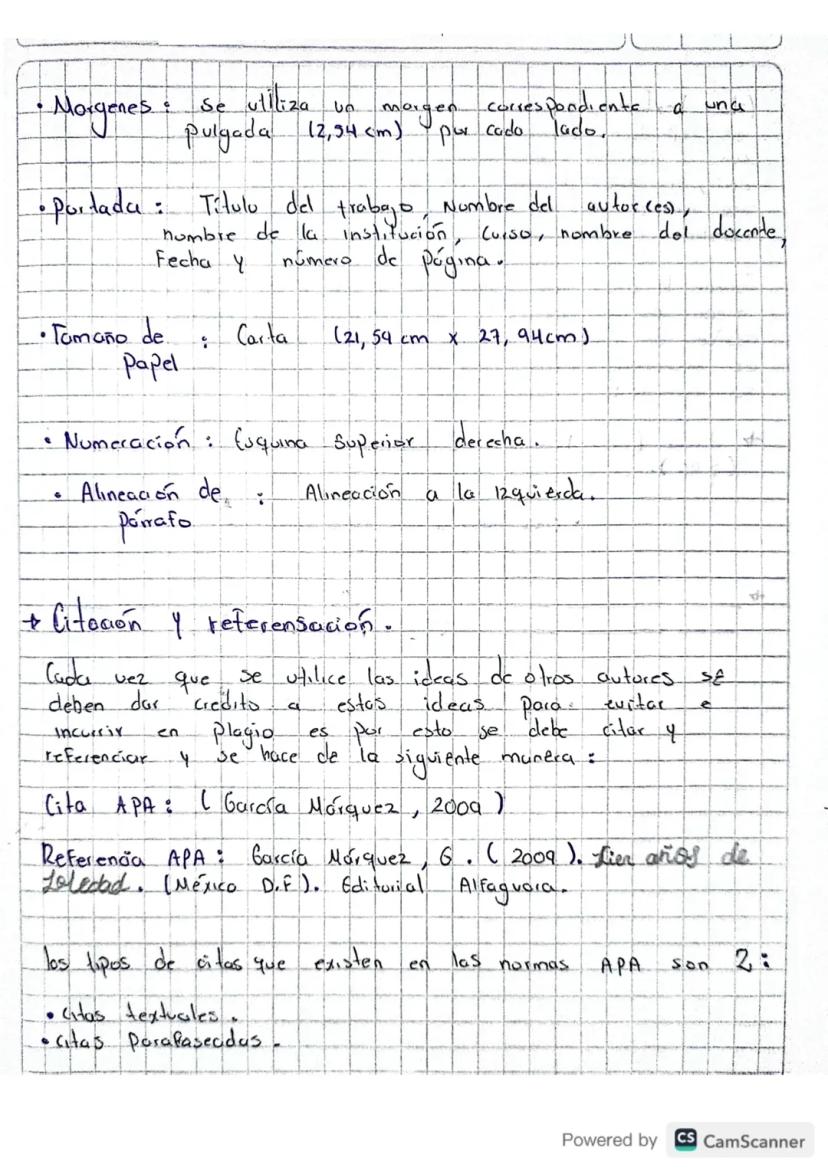 • Margenes: Se utiliza un margen correspondiente a una
pulgada (2,54 cm) por cada lado.
• Portada: Titulo del trabajo, Nombre del autor(es),
nombre de la institución, Curso, nombre del docente,
Fecha y número de página.
• Tamaño de : Carta (21,59 cm x 27,94cm)
Papel
• Numeración: Esquina Superior derecha.
• Alineación de : Alineación a la Izquierda.
párrafo
→ Citación y referensación.
Cada vez que se utilice las ideas de otros autores se
deben dar credito a estas ideas para evitar e
incurrir en Plagio es por esto se debe citar y
referenciar y se hace de la siguiente manera:
Cita APA: (García Márquez, 2009)
Referencia APA: García Márquez, G. (2009). Cien años de
Soledad. (México D.F). Editorial Alfaguara.
los tipos de citas que existen en las normas APA son 2:
• Citas textuales.
• Citas Parafaseadas.
Powered by CS CamScanner